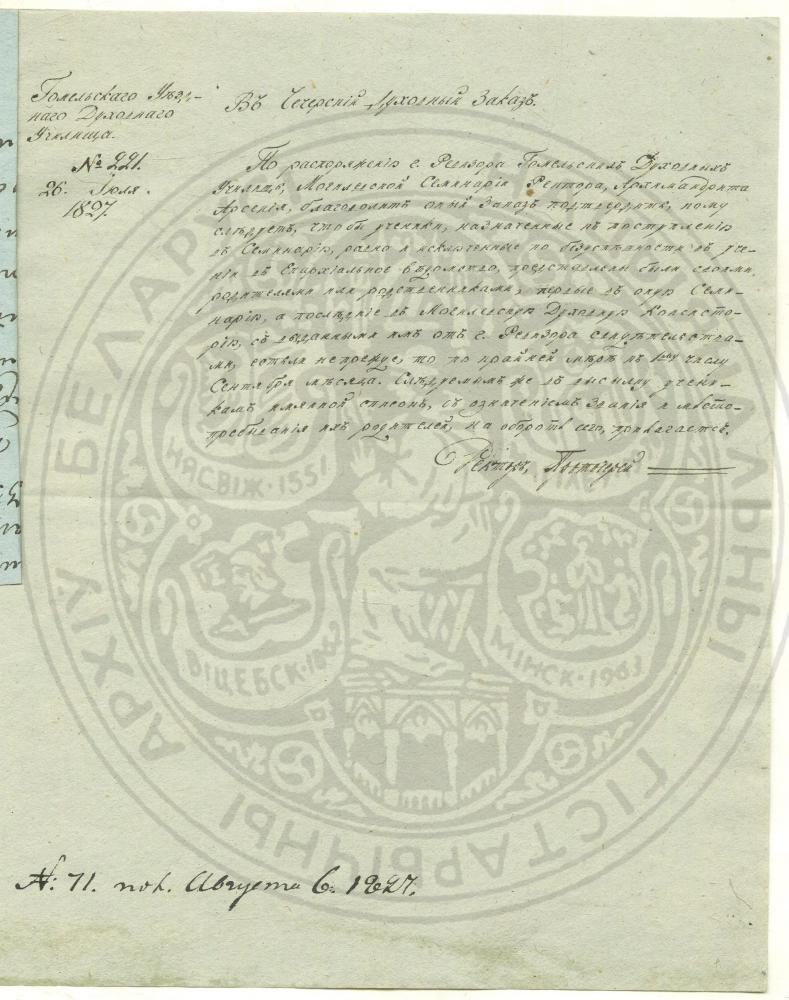 Гомельскаго Уѣзд-
наго Духовнаго
Училища.
№ 221.
26. Іюля.
1827.
Въ Чечерскій Духовный Заказъ.
По распоряженію г. Ревизора Гомельскихъ Духовныхъ
Училищъ, Могилевской Семинаріи Ректора, Архимандрита
Арсенія, благоволитъ оный Заказъ подтвердить, кому
слѣдуетъ, чтобы ученики, назначенные къ поступленію
въ Семинарію, равно и исключенные по безуспѣшности въ уче-
ніи въ Епархіальное вѣдомство, представлены были своими
родителями или родственниками, первые въ оную Семи-
нарію, а послѣдніе въ Могилевскую Духовную Консисто-
рію, съ выданными имъ отъ г. Ревизора свидѣтельства-
ми, естьли не прежде, то по крайней мѣрѣ къ 1му числу
Сентября мѣсяца. Слѣдуемымъ же въ высылку учени-
камъ имянной списокъ, съ означеніемъ званія и мѣсто-
пребыванія ихъ родителей, на оборотѣ сего, прилагается.
Ректоръ,
№: 71. пол. Августа 6. 1827.
АРХІЎ БЕЛАРУ
ГІСТАРЫЧНЫ
НЯСВІЖ·1551
ВІЦЕБСК·1863
МІНСК·1963